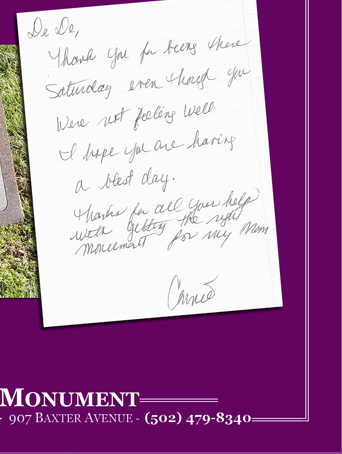 De De,
Thank you for being there
Saturday even though you
Were not feeling well.
I hope you are having
a blest day.
Thanks for all your help
with getting the right
monument for my Mom
Connie
MONUMENT
- 907 BAXTER AVENUE - (502) 479-8340